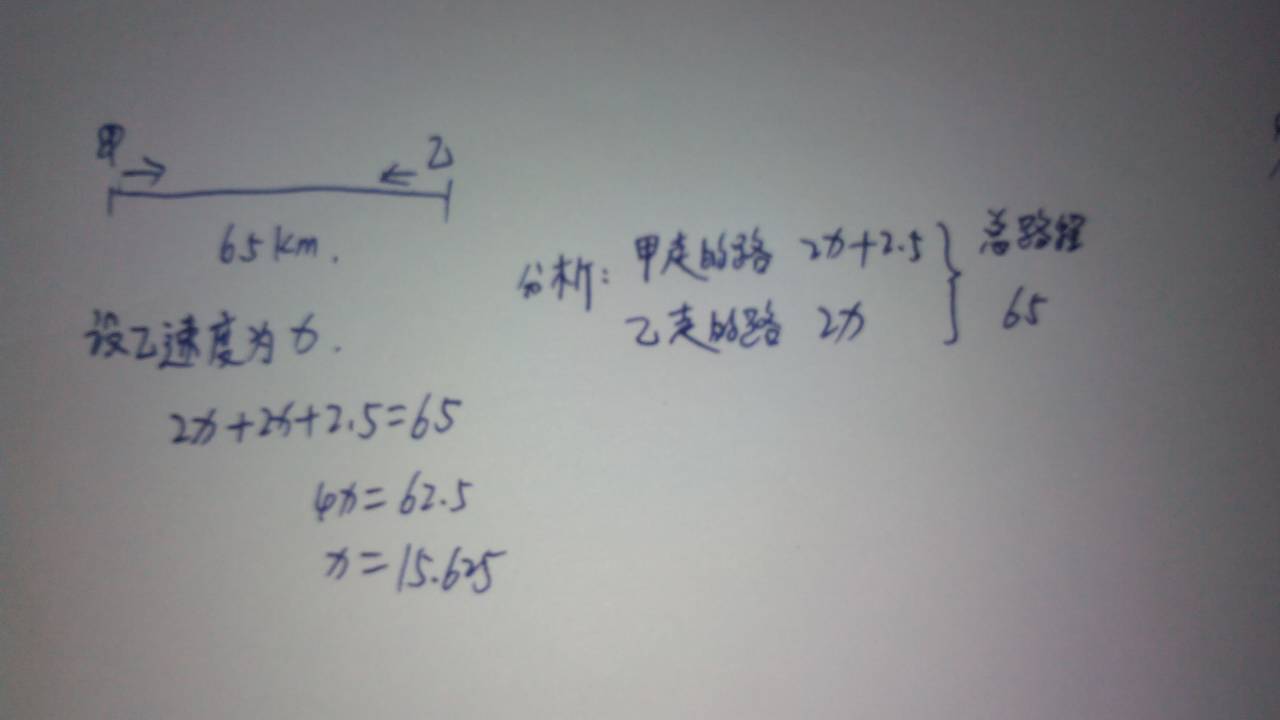 甲 → ← 乙
65km.
设乙速度为x.
2x+2x+2.5=65
4x=62.5
x=15.625
分析: 甲走的路 2x+2.5 } 总路程
乙走的路 2x 65